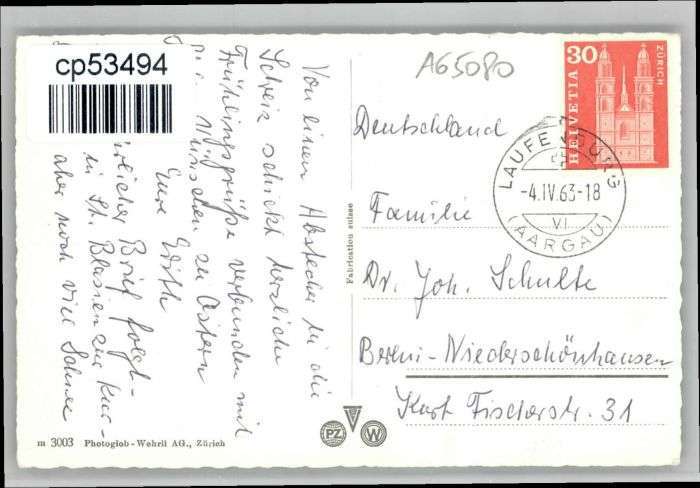 cp53494
A65080
HELVETIA
30
ZÜRICH
LAUFENBURG
-4.IV.63-18
VI
(AARGAU)
Von einem Abstecher in die
Schweiz schickt herzliche
Frühlingsgrüße verbunden mit
Wünschen zu Ostern
Eure Edith
Brief folgt-
in St. Blasien zur Kur-
aber noch viel Schnee
Fabrication suisse
Deutschland
Familie
Dr. Joh. Schulte
Berlin-Niederschönhausen
Kurt Fischerstr. 31
m 3003 Photoglob-Wehrli AG., Zürich
PZ W